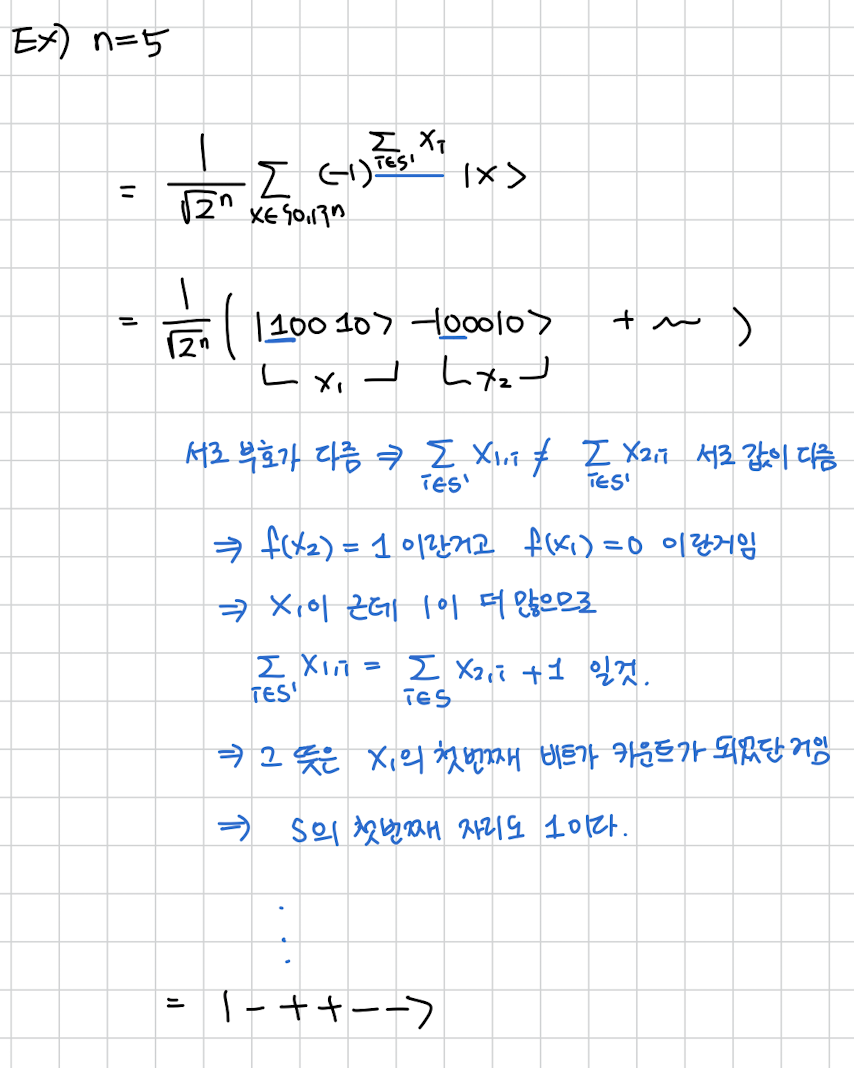 Ex) n=5
= 1/√2ⁿ Σ_{x∈{0,1}ⁿ} (-1)^{Σ_{i∈S'} x_i} |x>
= 1/√2ⁿ ( |10010> -|00010> + ~ )
x₁ x₂
서로 부호가 다름 ⇒ Σ_{i∈S'} x_{1,i} ≠ Σ_{i∈S'} x_{2,i} 서로 값이 다름
⇒ f(x₂) = 1 이란거고 f(x₁) = 0 이란거임
⇒ x₁이 근데 1이 더 많으므로
Σ_{i∈S'} x_{1,i} = Σ_{i∈S} x_{2,i} + 1 일것.
⇒ 그 뜻은 x₁의 첫번째 비트가 카운트가 되었단 거임
⇒ S의 첫번째 자리도 1이다.
⋮
= |-++-->